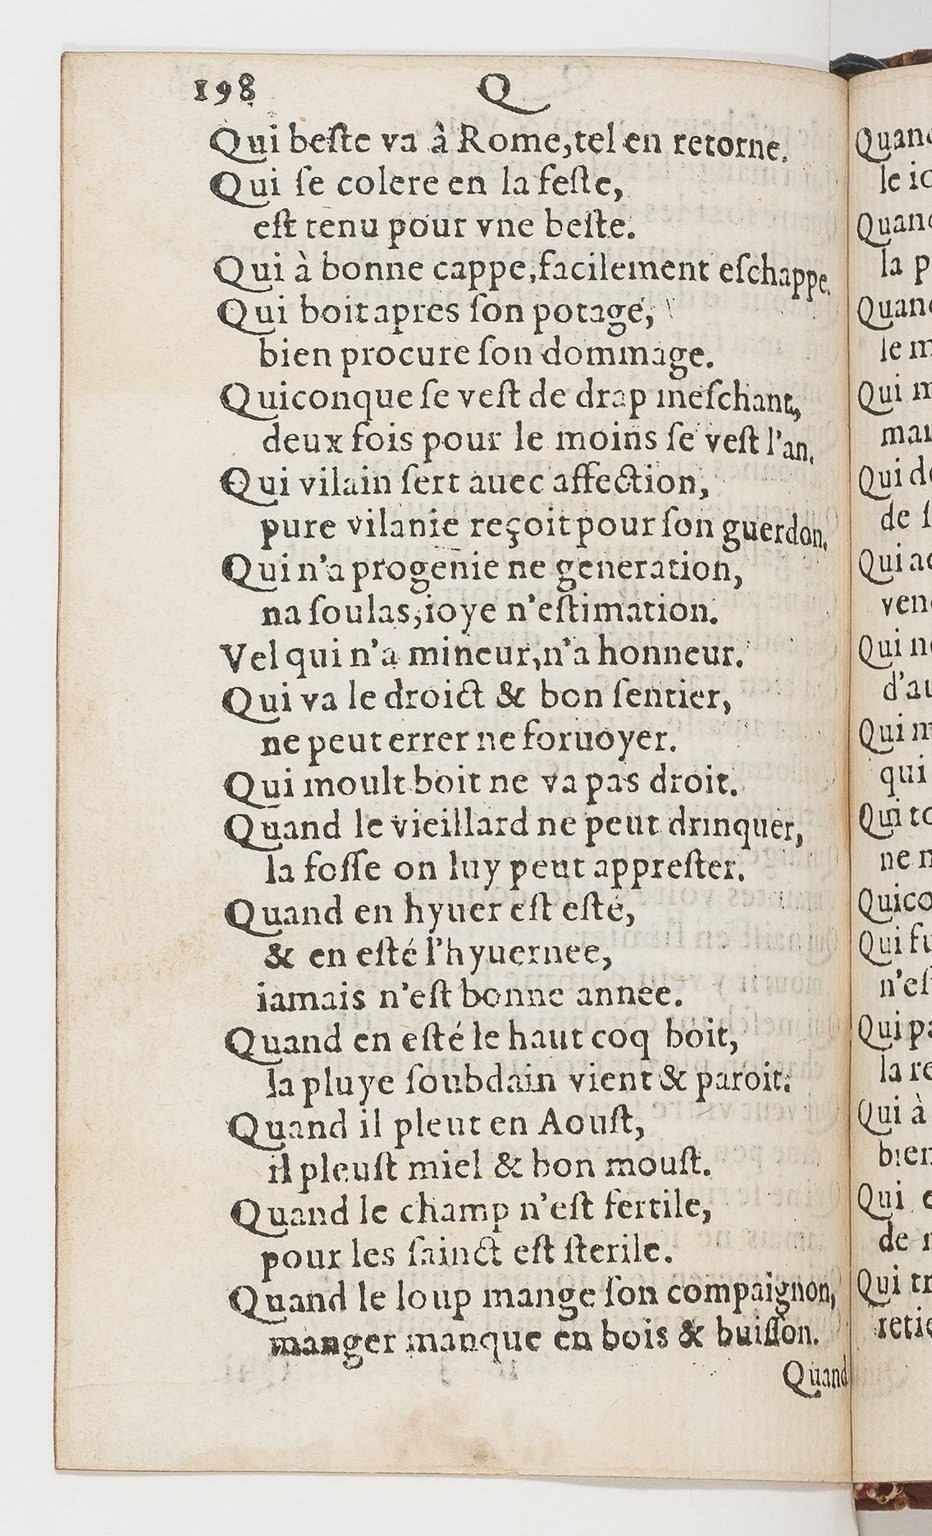 198 Q
Qui beſte va à Rome, tel en retorne.
Qui ſe colere en la feſte,
eſt tenu pour vne beſte.
Qui à bonne cappe, facilement eſchappe.
Qui boit apres ſon potage,
bien procure ſon dommage.
Quiconque ſe veſt de drap meſchant,
deux fois pour le moins ſe veſt l'an.
Qui vilain ſert auec affection,
pure vilanie reçoit pour ſon guerdon.
Qui n'a progenie ne generation,
na ſoulas, ioye n'eſtimation.
Vel qui n'a mineur, n'a honneur.
Qui va le droict & bon ſentier,
ne peut errer ne foruoyer.
Qui moult boit ne va pas droit.
Quand le vieillard ne peut drinquer,
la foſſe on luy peut appreſter.
Quand en hyuer eſt eſté,
& en eſté l'hyuernee,
iamais n'eſt bonne annee.
Quand en eſté le haut coq boit,
la pluye ſoubdain vient & paroit.
Quand il pleut en Aouſt,
il pleuſt miel & bon mouſt.
Quand le champ n'eſt fertile,
pour les ſainct eſt ſterile.
Quand le loup mange ſon compaignon,
manger manque en bois & buiſſon.
Quand